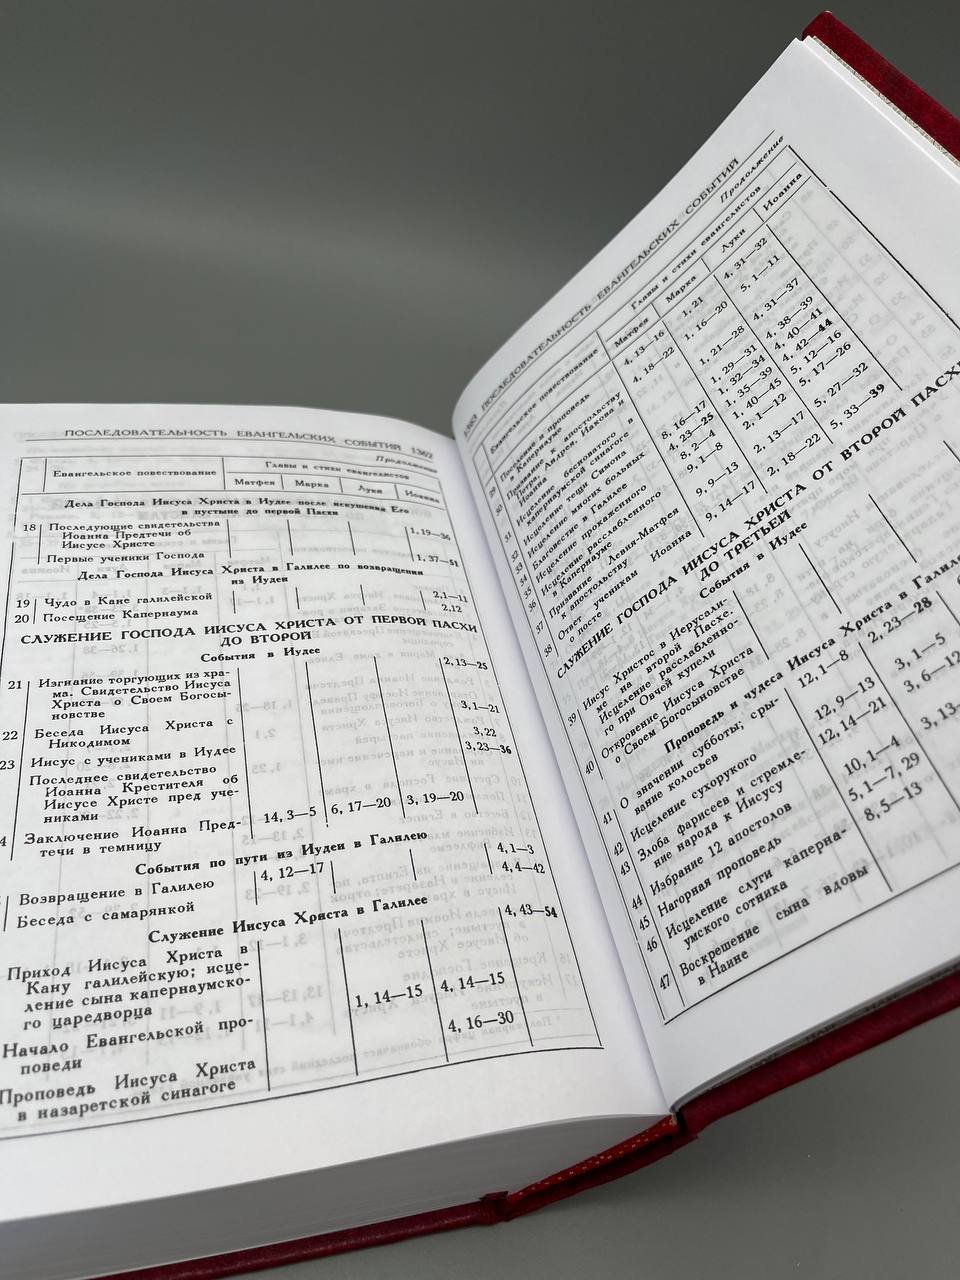 ПОСЛЕДОВАТЕЛЬНОСТЬ ЕВАНГЕЛЬСКИХ СОБЫТИЙ 1362
Продолжение
Евангельское повествование
Главы и стихи евангелистов
Матфея Марка Луки Иоанна
Дела Господа Иисуса Христа в Иудее после искушения Его
в пустыне до первой Пасхи
18 Последующие свидетельства
Иоанна Предтечи об
Иисусе Христе 1, 19—36
Первые ученики Господа 1, 37—51
Дела Господа Иисуса Христа в Галилее по возвращении
из Иудеи
19 Чудо в Кане галилейской 2, 1—11
20 Посещение Капернаума 2, 12
СЛУЖЕНИЕ ГОСПОДА ИИСУСА ХРИСТА ОТ ПЕРВОЙ ПАСХИ
ДО ВТОРОЙ
События в Иудее
21 Изгнание торгующих из хра-
ма. Свидетельство Иисуса
Христа о Своем Богосы-
новстве 2, 13—25
22 Беседа Иисуса Христа с
Никодимом 3, 1—21
23 Иисус с учениками в Иудее 3, 22
Последнее свидетельство
Иоанна Крестителя об
Иисусе Христе пред уче-
никами 3, 23—36
4 Заключение Иоанна Пред-
течи в темницу 14, 3—5 6, 17—20 3, 19—20
События по пути из Иудеи в Галилею
Возвращение в Галилею 4, 12—17 4, 1—3
Беседа с самарянкой 4, 4—42
Служение Иисуса Христа в Галилее
Приход Иисуса Христа в
Кану галилейскую; исце-
ление сына капернаумско-
го царедворца 4, 43—54
Начало Евангельской про-
поведи 1, 14—15 4, 14—15
Проповедь Иисуса Христа
в назаретской синагоге 4, 16—30
1363 ПОСЛЕДОВАТЕЛЬНОСТЬ ЕВАНГЕЛЬСКИХ СОБЫТИЙ
Продолжение
Евангельское повествование
Главы и стихи евангелистов
Матфея Марка Луки Иоанна
29 Поселение и проповедь
в Капернауме 4, 13—16 1, 21 4, 31—32
30 Призвание к апостольству
Петра, Андрея, Иакова и
Иоанна 4, 18—22 1, 16—20 5, 1—11
31 Исцеление бесноватого
в капернаумской синагоге 1, 21—28 4, 31—37
32 Исцеление тещи Симона 1, 29—31 4, 38—39
33 Исцеление многих больных 8, 16—17 1, 32—34 4, 40—41
34 Благовестие в Галилее 4, 23—25 1, 35—39 4, 42—44
35 Исцеление прокаженного 8, 2—4 1, 40—45 5, 12—16
36 Исцеление расслабленного
в Капернауме 9, 1—8 2, 1—12 5, 17—26
37 Призвание Левия-Матфея
к апостольству 9, 9—13 2, 13—17 5, 27—32
38 Ответ ученикам Иоанна
о посте 9, 14—17 2, 18—22 5, 33—39
СЛУЖЕНИЕ ГОСПОДА ИИСУСА ХРИСТА ОТ ВТОРОЙ ПАСХИ
ДО ТРЕТЬЕЙ
События в Иудее
39 Иисус Христос в Иерусали-
ме на второй Пасхе.
Исцеление расслабленно-
го при Овчей купели
40 Откровение Иисуса Христа
о Своем Богосыновстве
Проповедь и чудеса Иисуса Христа в Галилее
41 О значении субботы; сры-
вание колосьев 12, 1—8 2, 23—28
42 Исцеление сухорукого 12, 9—13 3, 1—5
43 Злоба фарисеев и стремле-
ние народа к Иисусу 12, 14—21 3, 6—12
44 Избрание 12 апостолов 10, 1—4 3, 13—
45 Нагорная проповедь 5, 1—7, 29
46 Исцеление слуги каперна-
умского сотника 8, 5—13
47 Воскрешение сына вдовы
в Наине